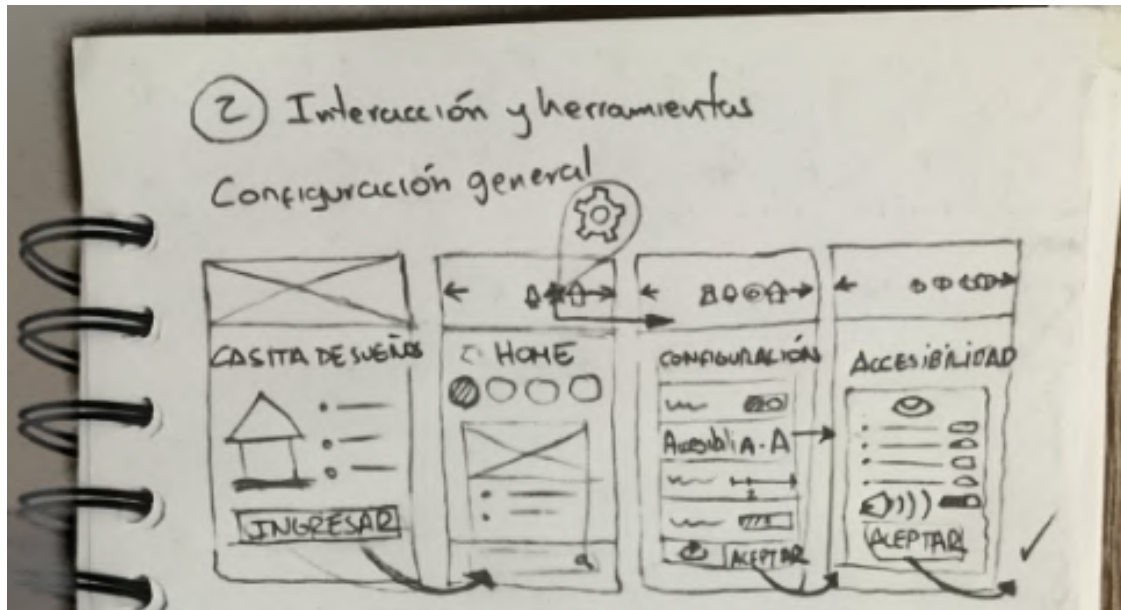 2 Interacción y herramientas
Configuración general
CASITA DE SUEÑOS
INGRESAR
HOME
CONFIGURACIÓN
A-A
2
ACEPTAR
ACCESIBILIDAD
ACEPTAR